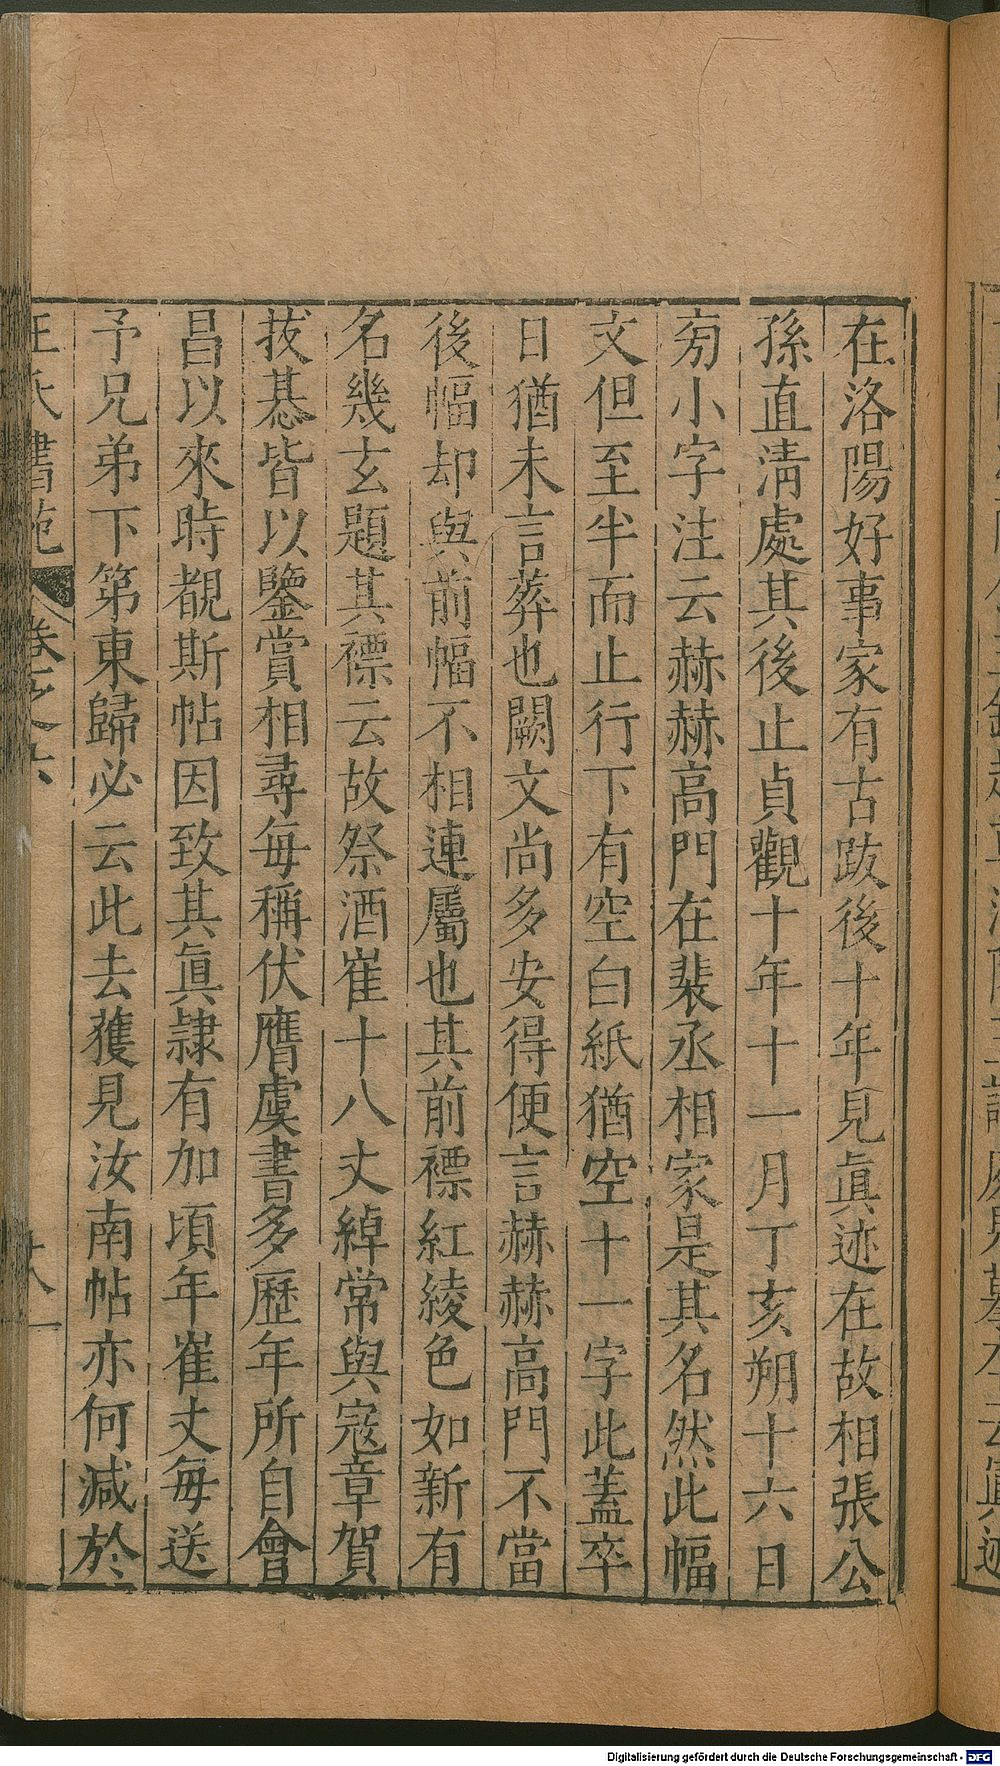 在洛陽好事家有古跋後十年見眞迹在故相張公
孫直淸處其後止貞觀十年十一月丁亥朔十六日
旁小字注云赫赫高門在裴丞相家是其名然此幅
文但至半而止行下有空白紙猶空十一字此蓋卒
日猶未言葬也闕文尚多安得便言赫赫高門不當
後幅却與前幅不相連屬也其前褾紅綾色如新有
名幾玄題其褾云故祭酒崔十八丈綽常與寇章賀
拔惎皆以鑒賞相尋每稱伏膺虞書多歷年所自會
昌以來時覩斯帖因致其眞隷有加頃年崔丈每送
予兄弟下第東歸必云此去獲見汝南帖亦何減於
王氏書苑 卷之六 十八
Digitalisierung gefördert durch die Deutsche Forschungsgemeinschaft - DFG